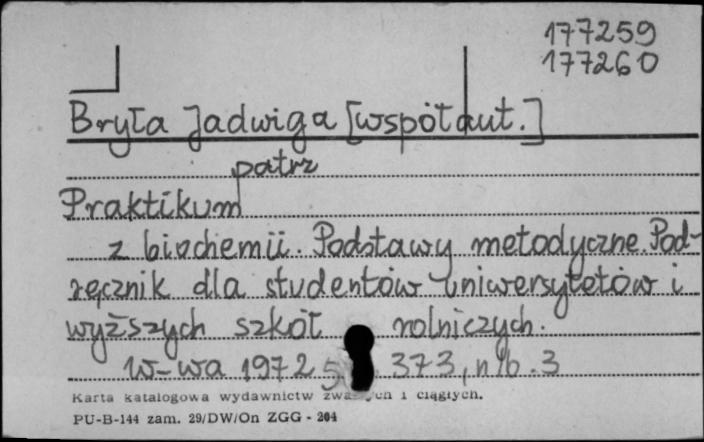 177259
177260
Bryła Jadwiga [współaut.]
patrz
Praktikum
z biochemii. Podstawy metodyczne. Pod-
ręcznik dla studentów uniwersytetów i
wyższych szkół rolniczych.
W-wa 1972 s 373, nlb. 3
Karta katalogowa wydawnictw i ciągłych.
PU-B-144 zam. 29/DW/On ZGG - 204